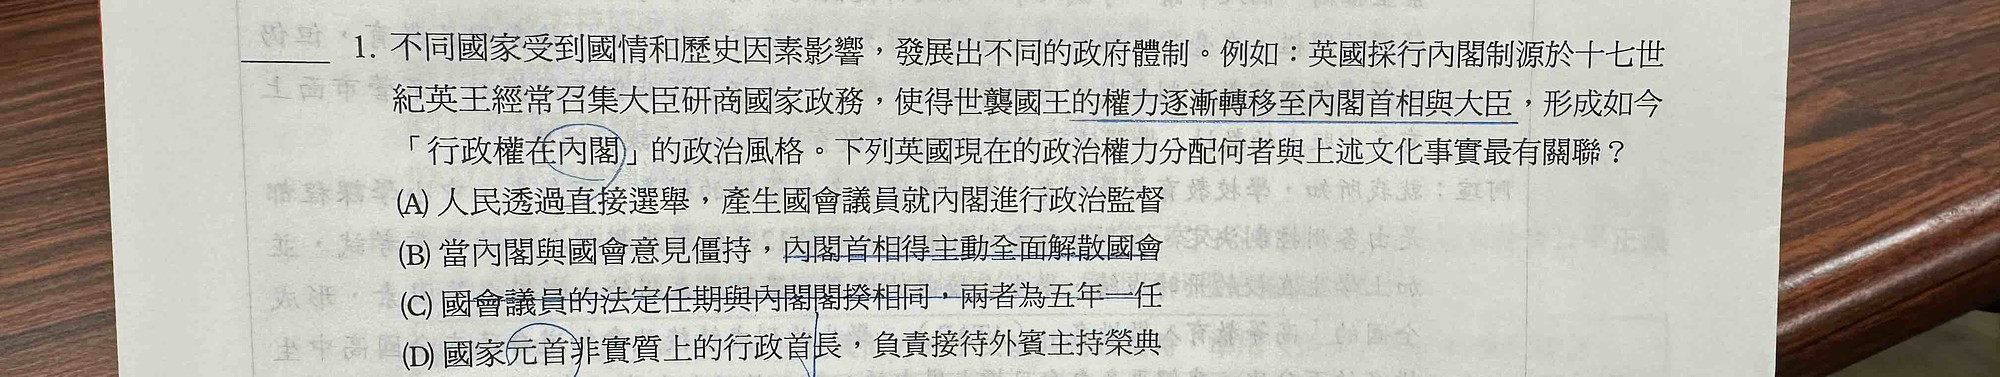 1. 不同國家受到國情和歷史因素影響，發展出不同的政府體制。例如：英國採行內閣制源於十七世
紀英王經常召集大臣研商國家政務，使得世襲國王的權力逐漸轉移至內閣首相與大臣，形成如今
「行政權在內閣」的政治風格。下列英國現在的政治權力分配何者與上述文化事實最有關聯？
(A) 人民透過直接選舉，產生國會議員就內閣進行政治監督
(B) 當內閣與國會意見僵持，內閣首相得主動全面解散國會
(C) 國會議員的法定任期與內閣閣揆相同，兩者為五年一任
(D) 國家元首非實質上的行政首長，負責接待外賓主持榮典